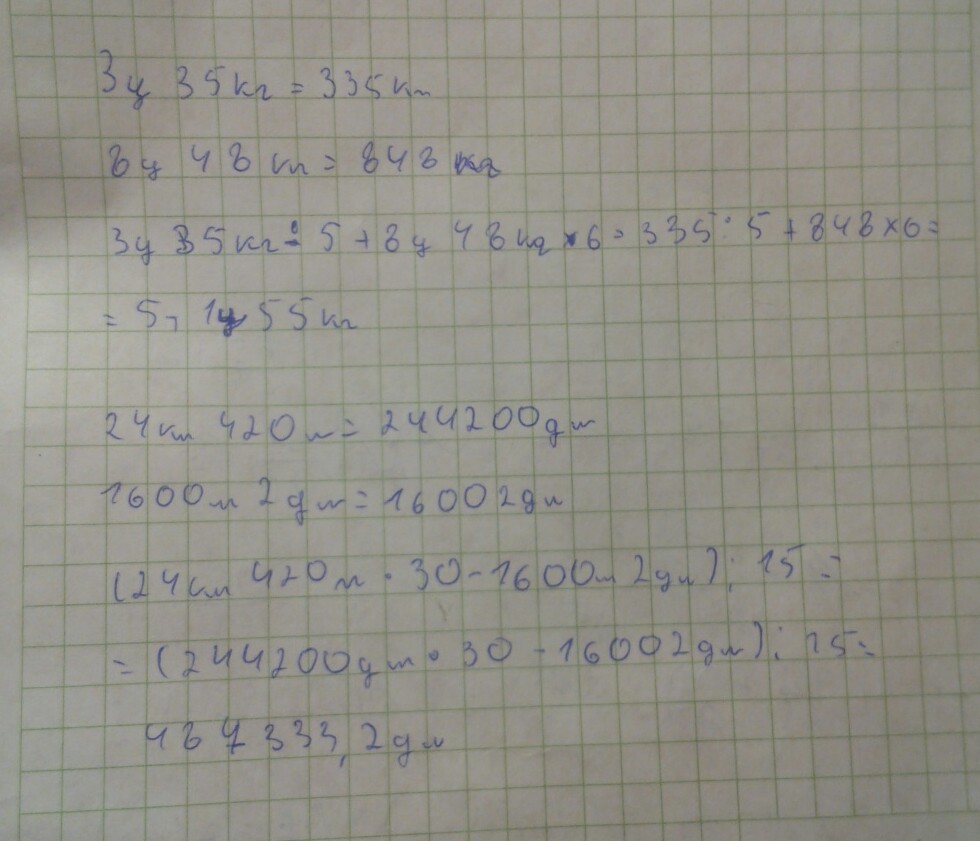 3ц 35кг = 335кг
8ц 48 кг = 848 кг
3ц 35кг : 5 + 8ц 48кг × 6 = 335 : 5 + 848 × 6 =
= 5т 1ц 55кг
24км 420м = 244200дм
1600м 2дм = 16002дм
(24км 420м · 30 - 1600м 2дм) : 15 =
= (244200дм · 30 - 16002дм) : 15 =
487333,2дм